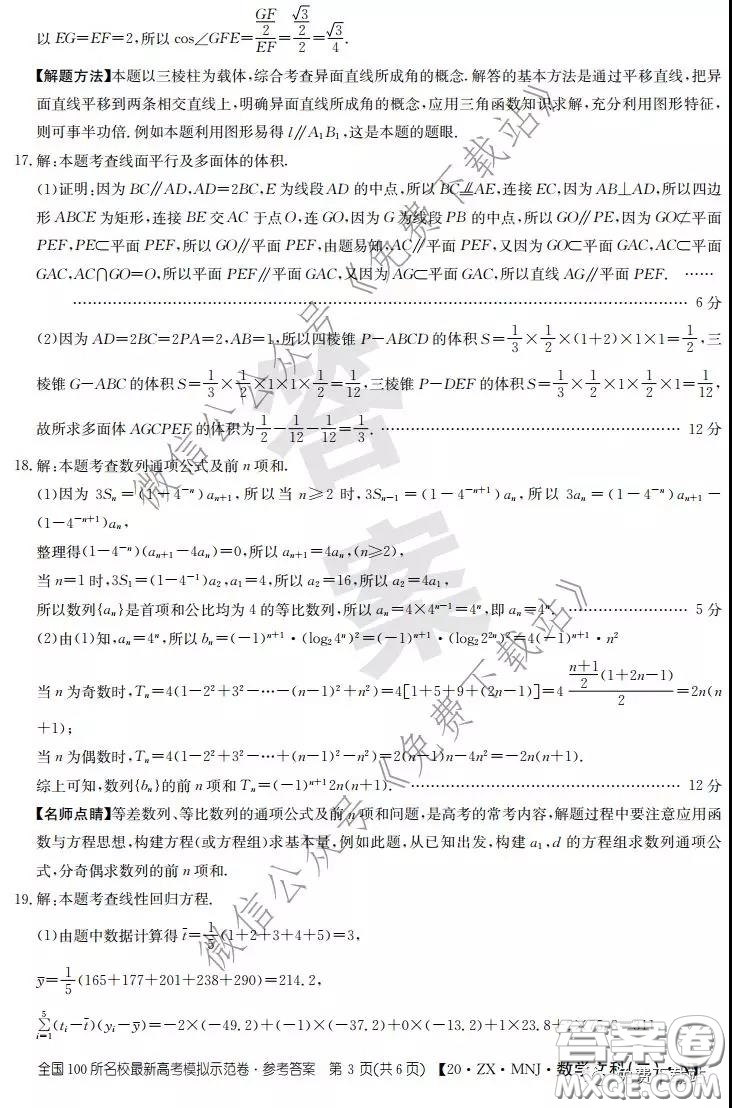 以 EG=EF=2,所以 cos∠GFE=(GF/2)/EF=(√3/2)/2=√3/4.
【解题方法】本题以三棱柱为载体,综合考查异面直线所成角的概念.解答的基本方法是通过平移直线,把异
面直线平移到两条相交直线上,明确异面直线所成角的概念,应用三角函数知识求解,充分利用图形特征,
则可事半功倍.例如本题利用图形易得 l∥A₁B₁,这是本题的题眼.
17.解:本题考查线面平行及多面体的体积.
(1)证明:因为 BC∥AD,AD=2BC,E 为线段 AD 的中点,所以 BC⫽AE,连接 EC,因为 AB⊥AD,所以四边
形 ABCE 为矩形,连接 BE 交 AC 于点 O,连 GO,因为 G 为线段 PB 的中点,所以 GO∥PE,因为 GO⊄平面
PEF,PE⊂平面 PEF,所以 GO∥平面 PEF,由题易知,AC∥平面 PEF,又因为 GO⊂平面 GAC,AC⊂平面
GAC,AC∩GO=O,所以平面 PEF∥平面 GAC,又因为 AG⊂平面 GAC,所以直线 AG∥平面 PEF. ……
…………………………………………………………………………………… 6 分
(2)因为 AD=2BC=2PA=2,AB=1,所以四棱锥 P-ABCD 的体积 S=1/3×1/2×(1+2)×1×1=1/2,三
棱锥 G-ABC 的体积 S=1/3×1/2×1×1×1/2=1/12,三棱锥 P-DEF 的体积 S=1/3×1/2×1×1/2×1=1/12,
故所求多面体 AGCPEF 的体积为1/2-1/12-1/12=1/3. …………………………………… 12 分
18.解:本题考查数列通项公式及前 n 项和.
(1)因为 3Sₙ=(1-4⁻ⁿ)aₙ₊₁,所以当 n≥2 时,3Sₙ₋₁=(1-4⁻ⁿ⁺¹)aₙ,所以 3aₙ=(1-4⁻ⁿ)aₙ₊₁-
(1-4⁻ⁿ⁺¹)aₙ,
整理得(1-4⁻ⁿ)(aₙ₊₁-4aₙ)=0,所以 aₙ₊₁=4aₙ,(n≥2),
当 n=1 时,3S₁=(1-4⁻¹)a₂,a₁=4,所以 a₂=16,所以 a₂=4a₁,
所以数列{aₙ}是首项和公比均为 4 的等比数列,所以 aₙ=4×4ⁿ⁻¹=4ⁿ,即 aₙ=4ⁿ. ……………… 5 分
(2)由(1)知,aₙ=4ⁿ,所以 bₙ=(-1)ⁿ⁺¹·(log₂4ⁿ)²=(-1)ⁿ⁺¹·(log₂2²ⁿ)²=4(-1)ⁿ⁺¹·n²
当 n 为奇数时,Tₙ=4(1-2²+3²-…-(n-1)²+n²)=4[1+5+9+(2n-1)]=4 ((n+1)/2(1+2n-1))/2=2n(n
+1);
当 n 为偶数时,Tₙ=4(1-2²+3²-…+(n-1)²-n²)=2(n-1)n-4n²=-2n(n+1).
综上可知,数列{bₙ}的前 n 项和 Tₙ=(-1)ⁿ⁺¹2n(n+1). …………………………………… 12 分
【名师点睛】等差数列、等比数列的通项公式及前 n 项和问题,是高考的常考内容,解题过程中要注意应用函
数与方程思想,构建方程(或方程组)求基本量,例如此题,从已知出发,构建 a₁,d 的方程组求数列通项公
式,分奇偶求数列的前 n 项和.
19.解:本题考查线性回归方程.
(1)由题中数据计算得 t̄=1/5(1+2+3+4+5)=3,
ȳ=1/5(165+177+201+238+290)=214.2,
∑⁵ᵢ₌₁(tᵢ-t̄)(yᵢ-ȳ)=-2×(-49.2)+(-1)×(-37.2)+0×(-13.2)+1×23.8+
全国 100 所名校最新高考模拟示范卷·参考答案 第 3 页(共 6 页) 【20·ZX·MNJ·数学文科
答案
微信公众号《免费下载站》
微信公众号《免费下载站》
答案圈
MXQE.COM